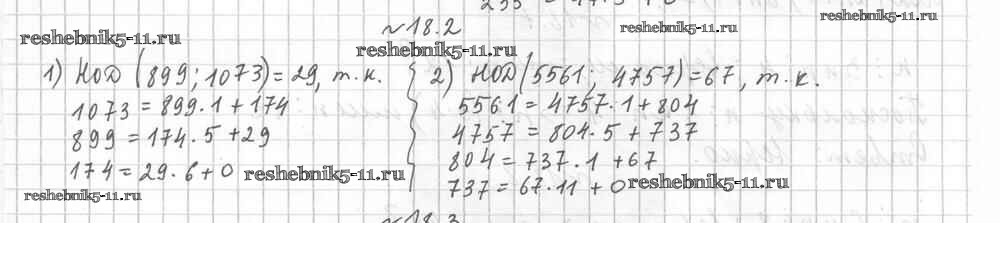 №18.2
1) НОД (899; 1073) = 29, т.к.
1073 = 899·1 + 174
899 = 174·5 + 29
174 = 29·6 + 0
2) НОД (5561; 4757) = 67, т.к.
5561 = 4757·1 + 804
4757 = 804·5 + 737
804 = 737·1 + 67
737 = 67·11 + 0
№18.3
reshebnik5-11.ru
reshebnik5-11.ru
reshebnik5-11.ru
reshebnik5-11.ru
reshebnik5-11.ru
reshebnik5-11.ru
reshebnik5-11.ru